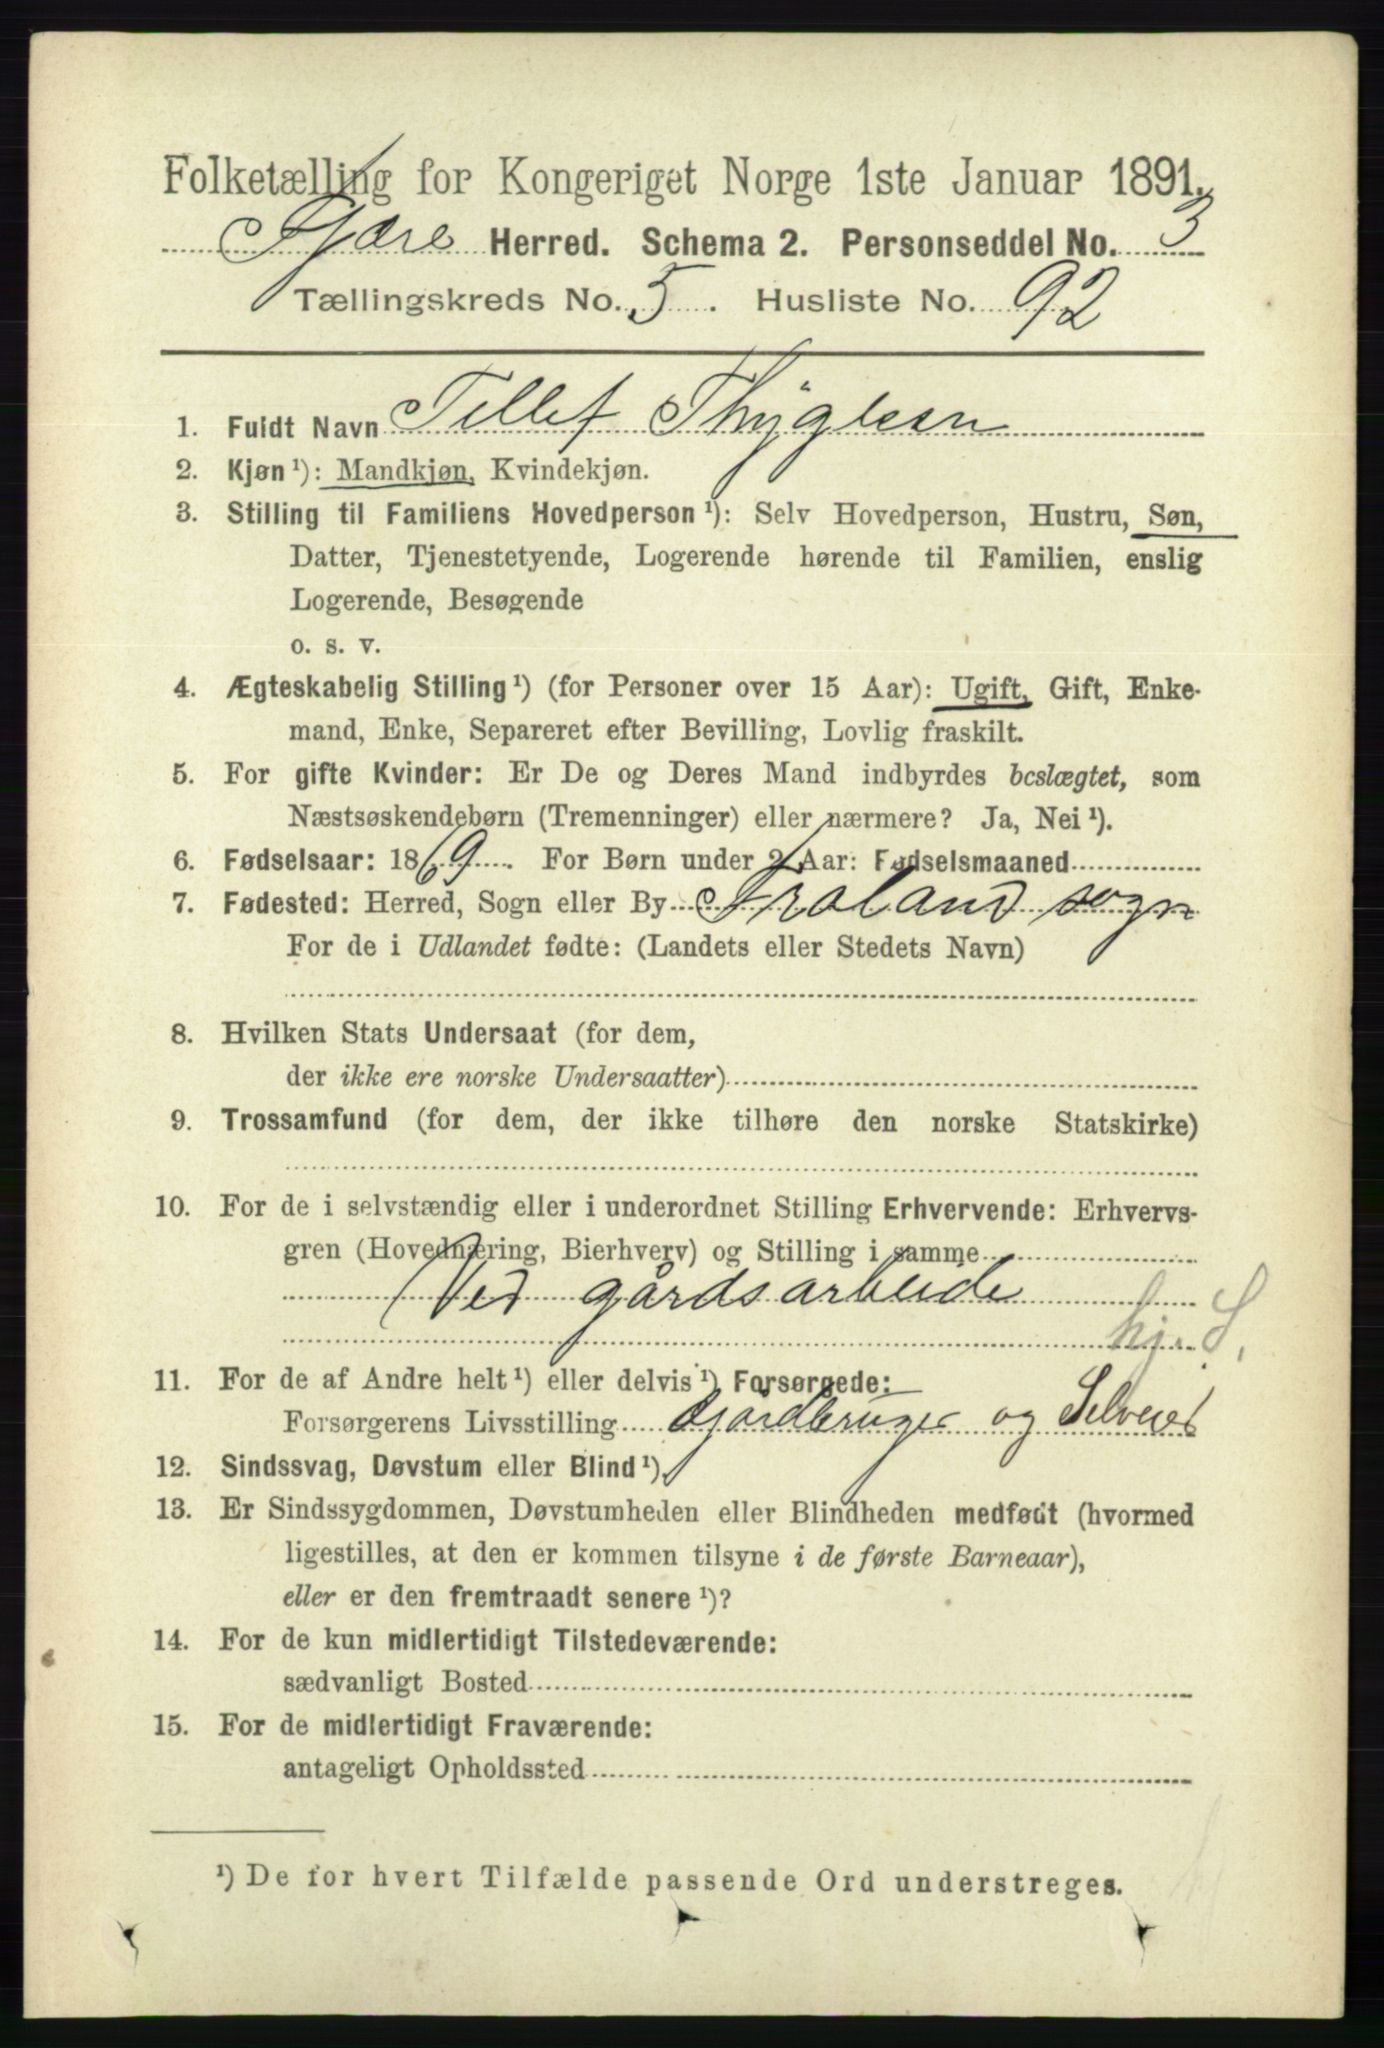 Folketælling for Kongeriget Norge 1ste Januar 1891.
Gjære Herred. Schema 2. Personseddel No. 3
Tællingskreds No. 5. Husliste No. 92
1. Fuldt Navn Tellef Thygesen
2. Kjøn ¹): Mandkjøn, Kvindekjøn.
3. Stilling til Familiens Hovedperson ¹): Selv Hovedperson, Hustru, Søn,
Datter, Tjenestetyende, Logerende hørende til Familien, enslig
Logerende, Besøgende
o. s. v.
4. Ægteskabelig Stilling ¹) (for Personer over 15 Aar): Ugift, Gift, Enke-
mand, Enke, Separeret efter Bevilling, Lovlig fraskilt.
5. For gifte Kvinder: Er De og Deres Mand indbyrdes beslægtet, som
Næstsøskendebørn (Tremenninger) eller nærmere? Ja, Nei ¹).
6. Fødselsaar: 1869. For Børn under 2 Aar: Fødselsmaaned
7. Fødested: Herred, Sogn eller By Froland sogn
For de i Udlandet fødte: (Landets eller Stedets Navn)
8. Hvilken Stats Undersaat (for dem,
der ikke ere norske Undersaatter)
9. Trossamfund (for dem, der ikke tilhøre den norske Statskirke)
10. For de i selvstændig eller i underordnet Stilling Erhvervende: Erhvervs-
gren (Hovednæring, Bierhverv) og Stilling i samme
Ved gårdsarbeide
hj. S.
11. For de af Andre helt ¹) eller delvis ¹) Forsørgede:
Forsørgerens Livsstilling Gårdbruger og Selveier
12. Sindssvag, Døvstum eller Blind ¹).
13. Er Sindssygdommen, Døvstumheden eller Blindheden medfødt (hvormed
ligestilles, at den er kommen tilsyne i de første Barneaar),
eller er den fremtraadt senere ¹)?
14. For de kun midlertidigt Tilstedeværende:
sædvanligt Bosted
15. For de midlertidigt Fraværende:
antageligt Opholdssted
¹) De for hvert Tilfælde passende Ord understreges.